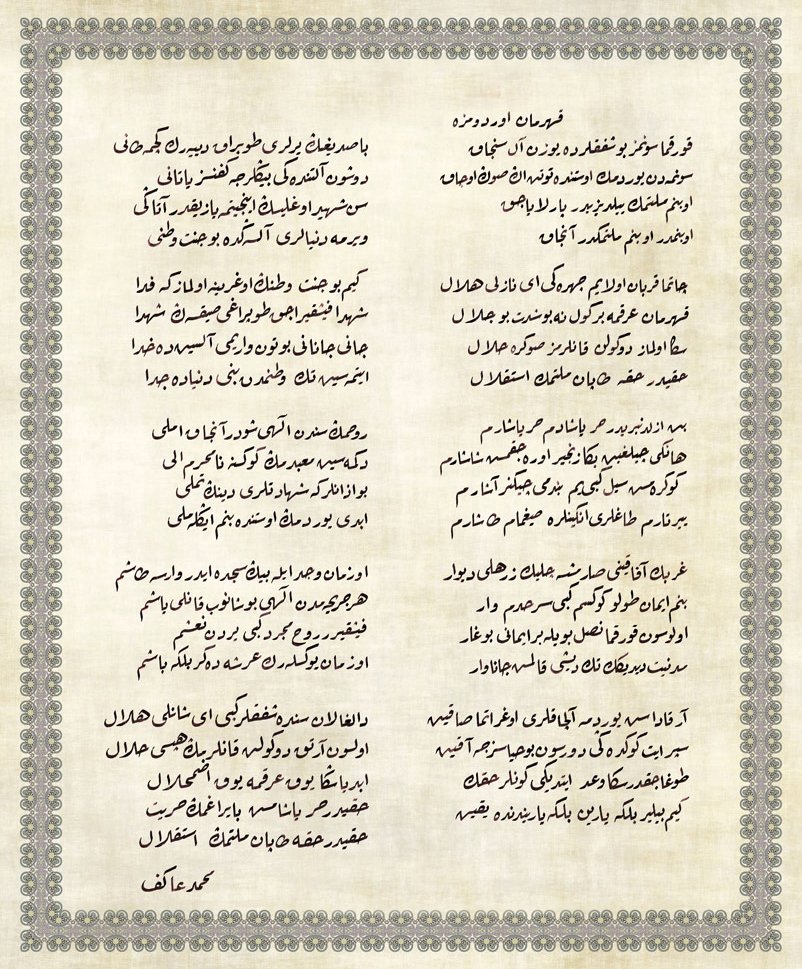 قهرمان اوردومزه
قورقما سونمز بو شفقلرده یوزن آل سنجاق
سونمه‌دن یوردمك اوستنده توتن اڭ صوڭ اوجاق
او بنم ملتمك ییلدیزیدر پارلایاجق
او بنمدر او بنم ملتمكدر آنجاق
چاتما قربان اولایم چهره‌كی ای نازلی هلال
قهرمان عرقمه بر كول نه بو شدت بو جلال
سكا اولماز دوكولن قانلرمز صوكره حلال
حقیدر حقه طاپان ملتمك استقلال
بن ازلدنبریدر حر یاشادم حر یاشارم
هانكی چیلغین بكا زنجیر اوره‌جقمش شاشارم
كوكره‌مش سیل كبی‌یم بندمی چیكنر آشارم
ییرتارم طاغلری انكینلره صیغمام طاشارم
غربك آفاقینی صارمشسه چلیك زرهلی دیوار
بنم ایمان طولو كوكسم كبی سرحدم وار
اولوسون قورقما نصل بویله بر ایمانی بوغار
مدنیت دیدیكك تك دیشی قالمش جاناوار
آرقاداش یوردیمه آلچاقلری اوغراتما صاقین
سپر ایت كوكده‌كی دورسون بو حیاسزجه آقین
طوغاجقدر سكا وعد ایتدیكی كونلر حقك
كیم بیلیر بلكه یارین بلكه یاریندنده یقین
باصدیغك یرلری طوپراق دییه‌رك كچمه طانی
دوشون آلتنده‌كی بیكلرجه كفنسز یاتانی
سن شهید اوغلیسك اینجیتمه یازیقدر آتاكی
ویرمه دنیالری آلسه‌كده بو جنت وطنی
كیم بو جنت وطنك اوغرینه اولماز كه فدا
شهدا فیشقیراجق طوپراغی صیقسه‌ك شهدا
جانی جانانی بوتون واریمی آلسین ده خدا
ایتمه‌سین تك وطنمدن بنی دنیاده جدا
روحمك سندن الهی شودر آنجاق املی
دكمه‌سین معبدمك كوكسنه نامحرم الی
بو اذانلر كه شهادتلری دینك تملی
ابدی یوردمك اوستنده بنم ایكله‌ملی
او زمان وجد ایله بیك سجده ایدر وارسه طاشم
هر جریحه‌مدن الهی بوشانوب قانلی یاشم
فیشقیرر روح مجرد كبی یردن نعشم
او زمان یوكسله‌رك عرشه ده‌كر بلكه باشم
دالغالان سنده شفقلر كبی ای شانلی هلال
اولسون آرتق دوكولن قانلرمك هپسی حلال
ابدیا سكا یوق عرقمه یوق اضمحلال
حقیدر حر یاشامش بایراغمك حریت
حقیدر حقه طاپان ملتمك استقلال
محمد عاكف